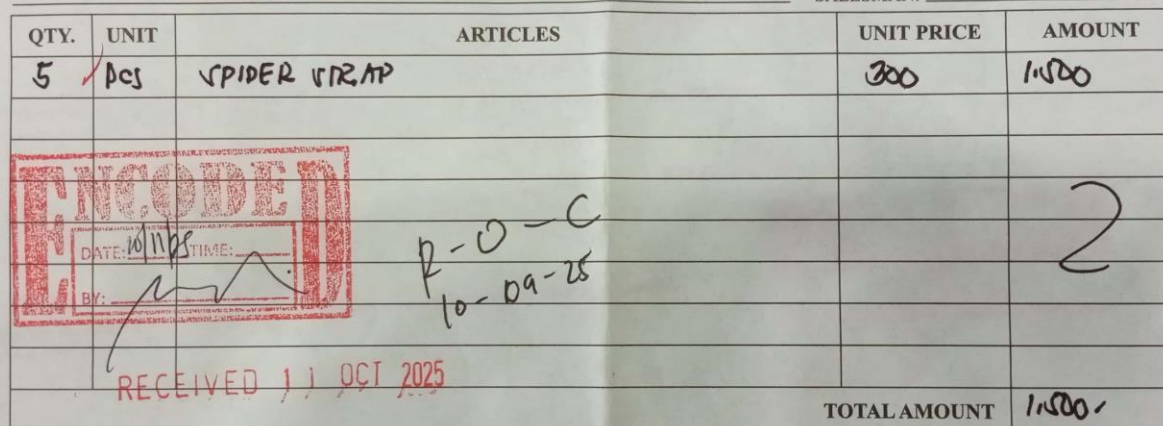 QTY. UNIT ARTICLES UNIT PRICE AMOUNT
5 pcs SPIDER STRAP 300 1,500
ENCODED
R-O-C 2
DATE: 10/11/25 TIME:
10-09-25
BY:
RECEIVED 11 OCT 2025
TOTAL AMOUNT 1,500